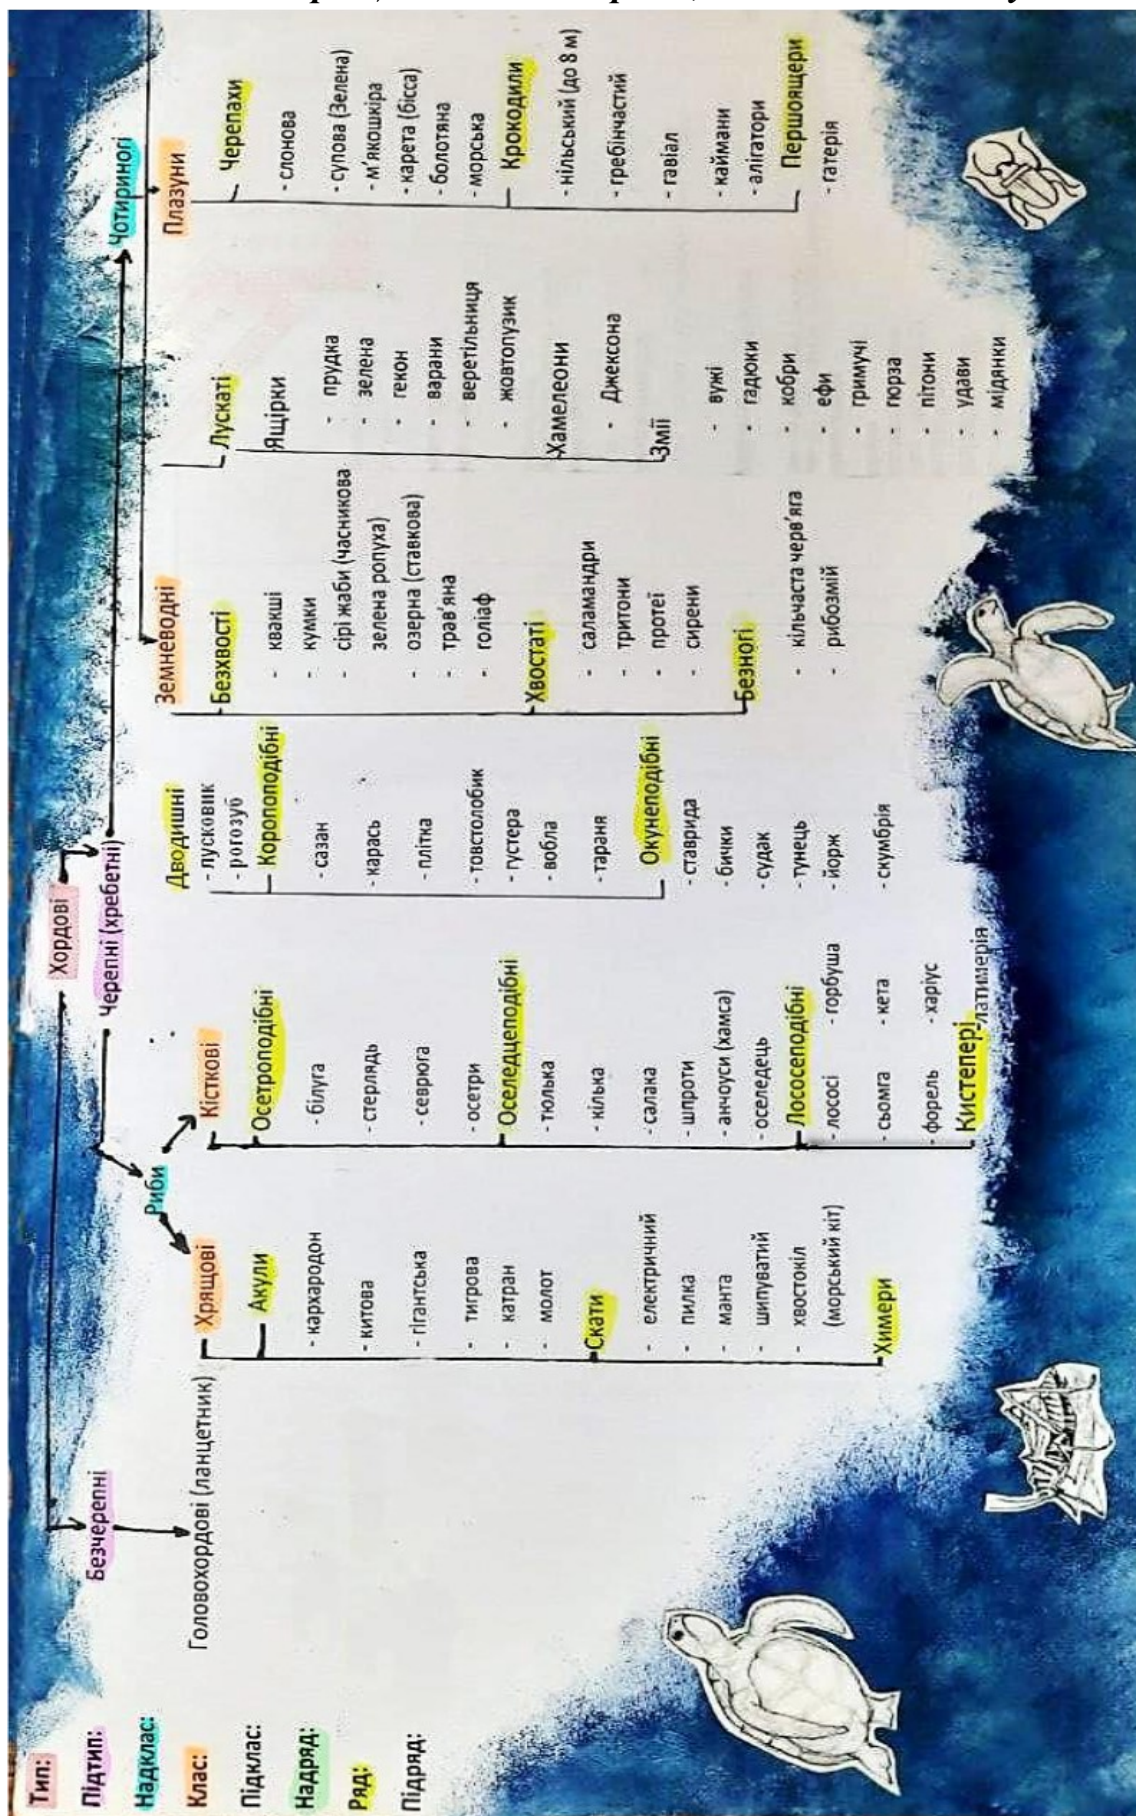 Тип:
Підтип:
Надклас:
Клас:
Підклас:
Надряд:
Ряд:
Підряд:
Хордові
Безчерепні
Головохордові (ланцетник)
Черепні (хребетні)
Риби
Хрящові
Акули
- кархародон
- китова
- гігантська
- тигрова
- катран
- молот
Скати
- електричний
- пилка
- манта
- шипуватий
- хвостокіл
(морський кіт)
Химери
Кісткові
Осетроподібні
- білуга
- стерлядь
- севрюга
- осетри
Оселедцеподібні
- тюлька
- кілька
- салака
- шпроти
- анчоуси (хамса)
- оселедець
Лососеподібні
- лососі - горбуша
- сьомга - кета
- форель - харіус
Кистепері
-латимерія
Дводишні
- лусковик
- рогозуб
Коропоподібні
- сазан
- карась
- плітка
- товстолобик
- густера
- вобла
- тараня
Окунеподібні
- ставрида
- бички
- судак
- тунець
- йорж
- скумбрія
Чотириногі
Земневодні
Безхвості
- квакші
- кумки
- сірі жаби (часникова
зелена ропуха)
- озерна (ставкова)
- трав'яна
- голіаф
Хвостаті
- саламандри
- тритони
- протеї
- сирени
Безногі
- кільчаста черв'яга
- рибозмій
Плазуни
Лускаті
Ящірки
- прудка
- зелена
- гекон
- варани
- веретільниця
- жовтопузик
Хамелеони
- Джексона
Змії
- вужі
- гадюки
- кобри
- ефи
- гримучі
- гюрза
- пітони
- удави
- мідянки
Черепахи
- слонова
- супова (Зелена)
- м'якошкіра
- карета (бісса)
- болотяна
- морська
Крокодили
- нільський (до 8 м)
- гребінчастий
- гавіал
- каймани
- алігатори
Першоящери
- гатерія